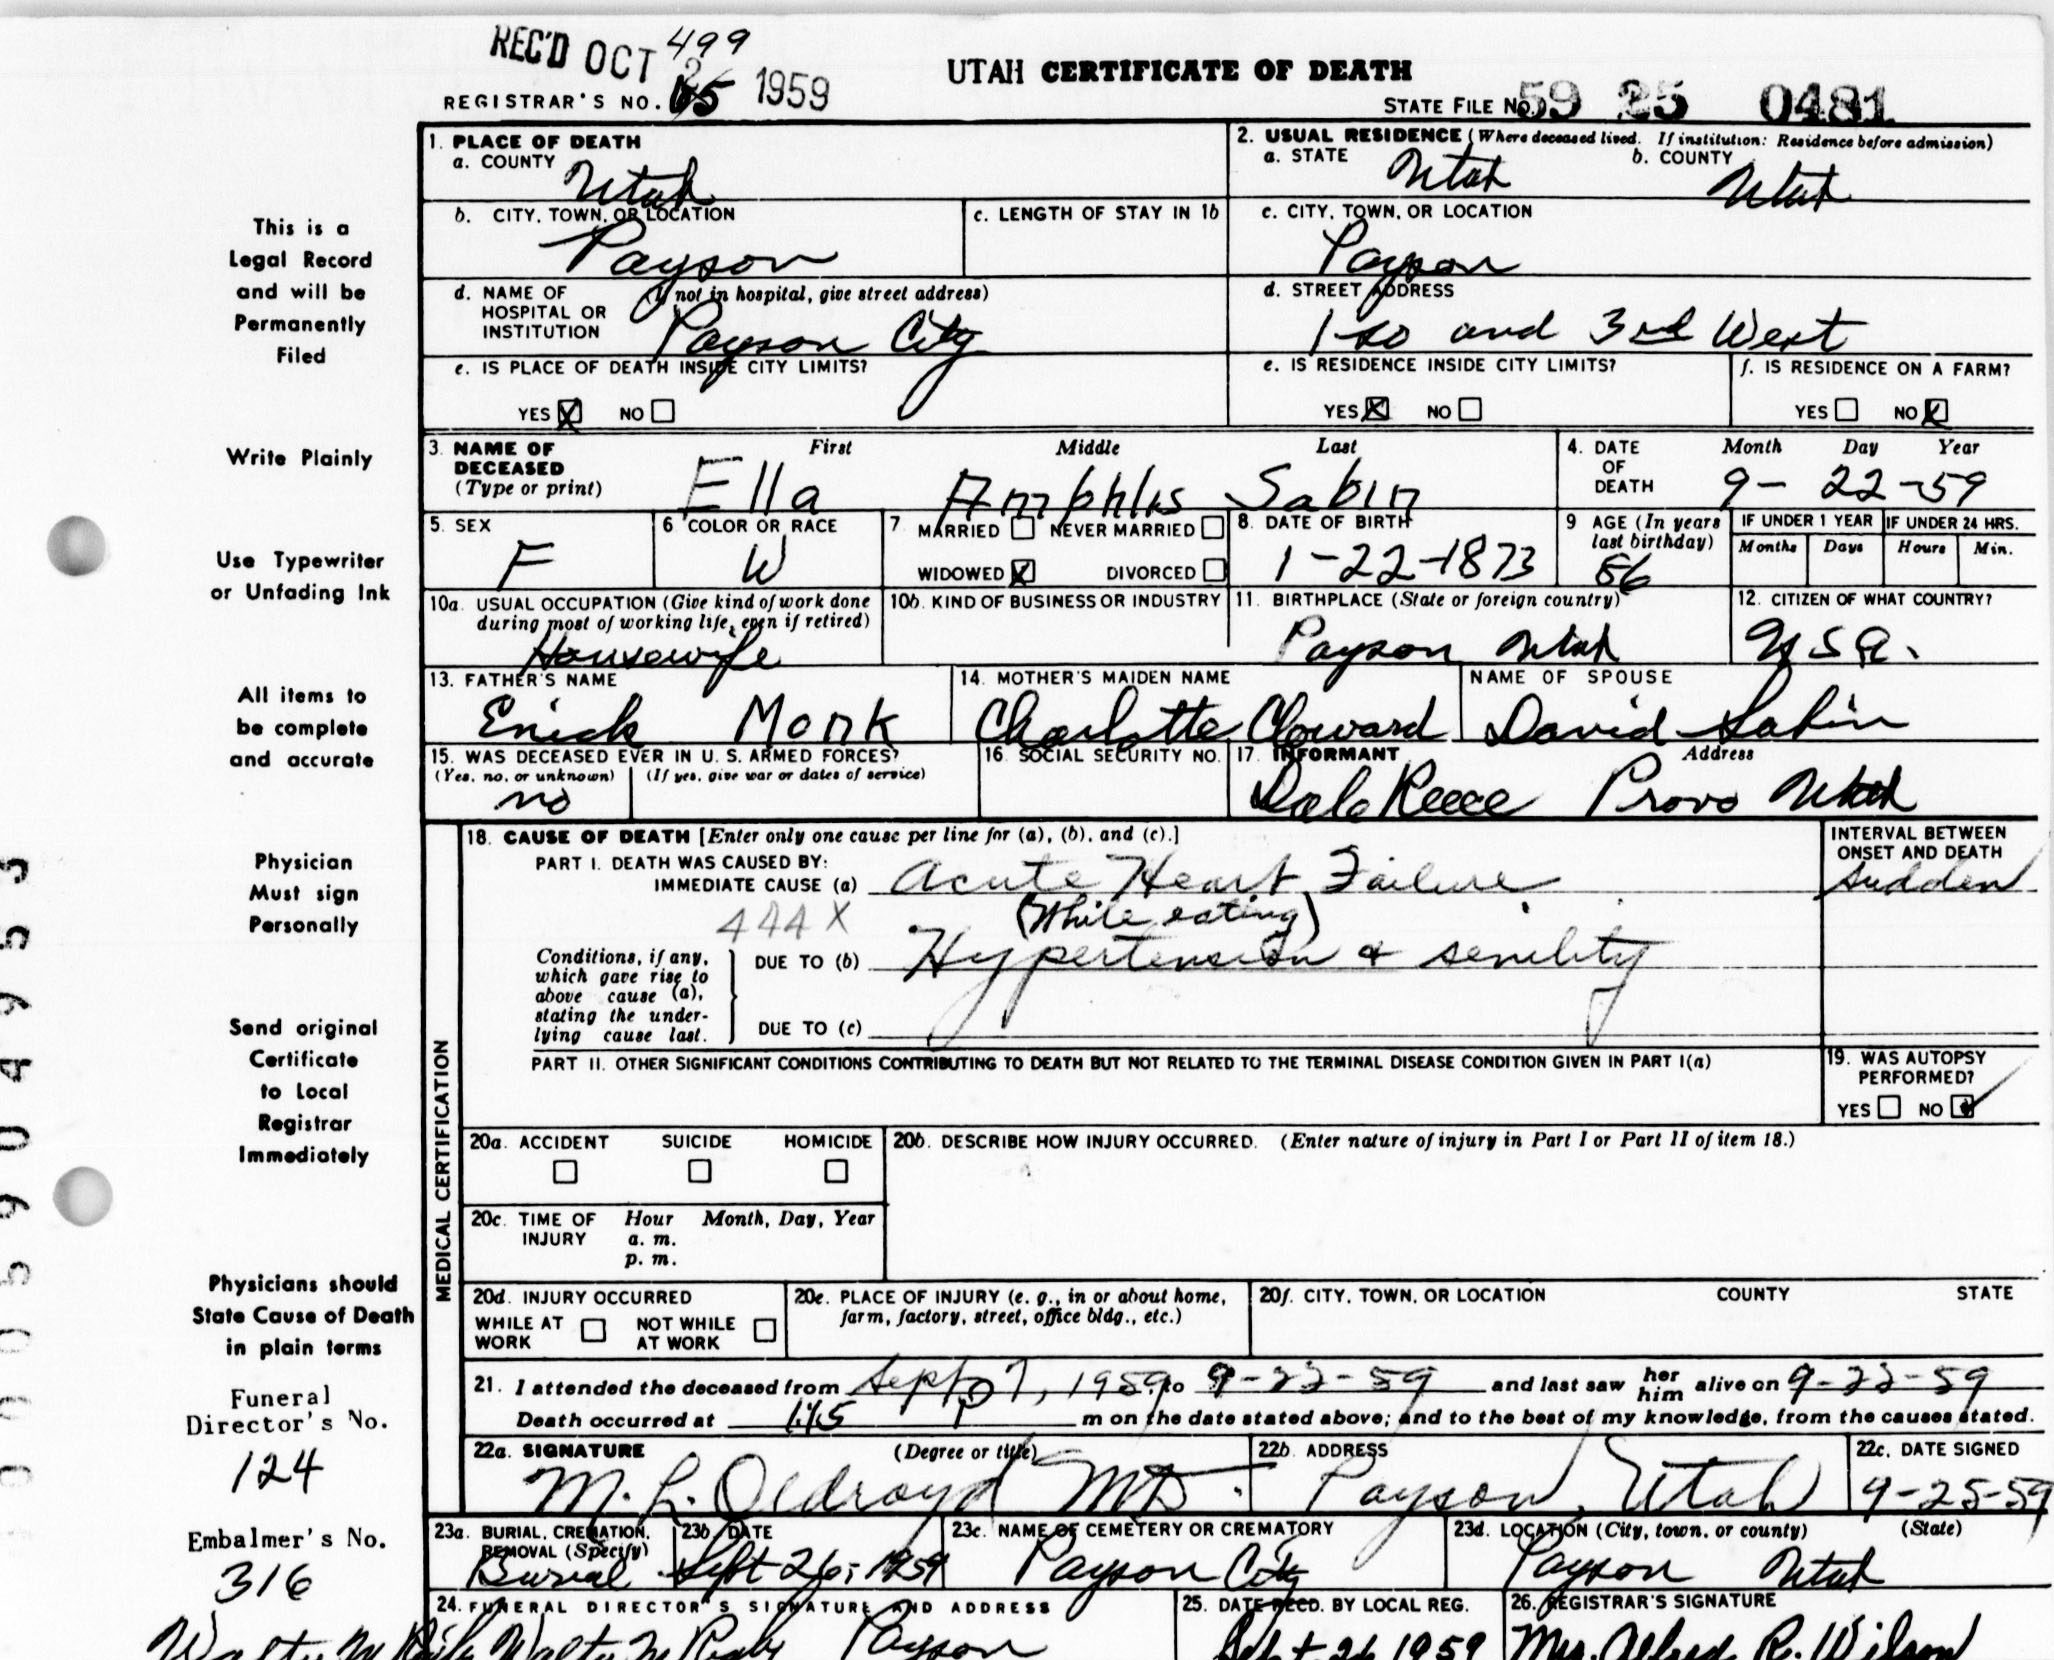 REC'D OCT 2 1959
499
UTAH CERTIFICATE OF DEATH
REGISTRAR'S NO.
STATE FILE NO. 59 25 0481
This is a
Legal Record
and will be
Permanently
Filed
Write Plainly
Use Typewriter
or Unfading Ink
All items to
be complete
and accurate
Physician
Must sign
Personally
Send original
Certificate
to Local
Registrar
Immediately
Physicians should
State Cause of Death
in plain terms
Funeral
Director's No.
124
Embalmer's No.
316
1. PLACE OF DEATH
a. COUNTY Utah
2. USUAL RESIDENCE (Where deceased lived. If institution: Residence before admission)
a. STATE Utah b. COUNTY Utah
b. CITY, TOWN, OR LOCATION Payson
c. LENGTH OF STAY IN 1b
c. CITY, TOWN, OR LOCATION Payson
d. NAME OF HOSPITAL OR INSTITUTION (If not in hospital, give street address) Payson City
d. STREET ADDRESS 1 so and 3rd West
e. IS PLACE OF DEATH INSIDE CITY LIMITS?
YES X NO
e. IS RESIDENCE INSIDE CITY LIMITS?
YES X NO
f. IS RESIDENCE ON A FARM?
YES NO X
3. NAME OF DECEASED (Type or print) First Middle Last
Ella Amphlis Sabin
4. DATE OF DEATH Month Day Year
9- 22-59
5. SEX F
6 COLOR OR RACE W
7. MARRIED NEVER MARRIED
WIDOWED X DIVORCED
8. DATE OF BIRTH 1-22-1873
9 AGE (In years last birthday) 86
IF UNDER 1 YEAR Months Days
IF UNDER 24 HRS. Hours Min.
10a. USUAL OCCUPATION (Give kind of work done during most of working life, even if retired) Housewife
10b. KIND OF BUSINESS OR INDUSTRY
11. BIRTHPLACE (State or foreign country) Payson Utah
12. CITIZEN OF WHAT COUNTRY? U S A.
13. FATHER'S NAME Erick Monk
14. MOTHER'S MAIDEN NAME Charlotte Cloward
NAME OF SPOUSE David Sabin
15. WAS DECEASED EVER IN U. S. ARMED FORCES?
(Yes, no, or unknown) (If yes, give war or dates of service)
no
16. SOCIAL SECURITY NO.
17. INFORMANT Address
Dale Reece Provo Utah
MEDICAL CERTIFICATION
18. CAUSE OF DEATH [Enter only one cause per line for (a), (b), and (c).]
PART I. DEATH WAS CAUSED BY:
IMMEDIATE CAUSE (a) Acute Heart Failure
INTERVAL BETWEEN ONSET AND DEATH
sudden
444X (While eating)
Conditions, if any, which gave rise to above cause (a), stating the underlying cause last.
DUE TO (b) Hypertension & senility
DUE TO (c)
PART II. OTHER SIGNIFICANT CONDITIONS CONTRIBUTING TO DEATH BUT NOT RELATED TO THE TERMINAL DISEASE CONDITION GIVEN IN PART I(a)
19. WAS AUTOPSY PERFORMED?
YES NO
20a. ACCIDENT SUICIDE HOMICIDE
20b. DESCRIBE HOW INJURY OCCURRED. (Enter nature of injury in Part I or Part II of item 18.)
20c. TIME OF INJURY Hour Month, Day, Year
a. m.
p. m.
20d. INJURY OCCURRED
WHILE AT WORK NOT WHILE AT WORK
20e. PLACE OF INJURY (e. g., in or about home, farm, factory, street, office bldg., etc.)
20f. CITY, TOWN, OR LOCATION COUNTY STATE
21. I attended the deceased from Sept 7, 1959 to 9-22-59 and last saw her him alive on 9-22-59
Death occurred at 1:45 P m on the date stated above; and to the best of my knowledge, from the causes stated.
22a. SIGNATURE (Degree or title)
M. L. Oldroyd MD.
22b. ADDRESS Payson, Utah
22c. DATE SIGNED 9-25-59
23a. BURIAL, CREMATION, REMOVAL (Specify) Burial
23b. DATE Sept 26, 1959
23c. NAME OF CEMETERY OR CREMATORY Payson City
23d. LOCATION (City, town, or county) (State)
Payson Utah
24. FUNERAL DIRECTOR'S SIGNATURE AND ADDRESS
Payson
25. DATE RECD. BY LOCAL REG. Sept 26 1959
26. REGISTRAR'S SIGNATURE
Mrs. Alfred R. Wilson